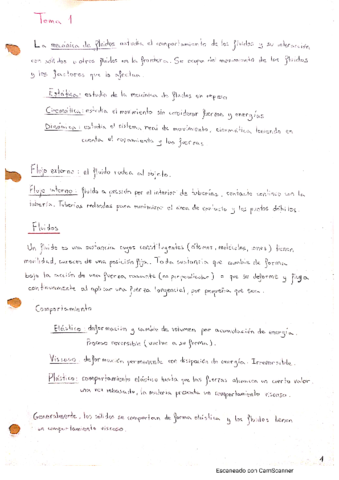 Tema 1
La mecánica de fluidos estudia el comportamiento de los fluidos y su interacción
con sólidos u otros fluidos en la frontera. Se ocupa del movimiento de los fluidos
y los factores que lo afectan.
Estática: estudio de la mecánica de fluidos en reposo
Cinemática: estudia el movimiento sin considerar fuerzas y energías
Dinámica: estudia el sistema, de movimiento, cinemática teniendo en
cuenta el rozamiento y las fuerzas
Flujo externo: el fluido rodea al sujeto.
Flujo interno: fluido a presión por el interior de tuberías, contacto continuo con la
tubería. Tuberías redondas para minimizar el área de contacto y los puntos débiles.
Fluidos
Un fluido es una sustancia cuyos constituyentes (átomos, moléculas, iones) tienen
movilidad, carecen de una posición fija. Toda sustancia que cambia de forma
bajo la acción de una fuerza cortante (no perpendicular) o que se deforma y fluye
continuamente al aplicar una fuerza tangencial, por pequeña que sea.
Comportamiento
Elástico: deformación y cambio de volumen por acumulación de energía.
Proceso reversible (vuelve a su forma).
Viscoso: deformación permanente con disipación de energía. Irreversible.
Plástico: comportamiento elástico hasta que las fuerzas alcanzan un cierto valor.
una vez rebasado, la materia presenta un comportamiento viscoso.
Generalmente, los sólidos se comportan de forma elástica y los fluidos tienen
un comportamiento viscoso.
4
Escaneado con CamScanner